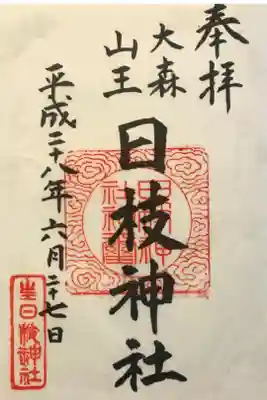 奉拝
大森
山王
日枝神社
平成二十八年六月二十七日
日枝神社